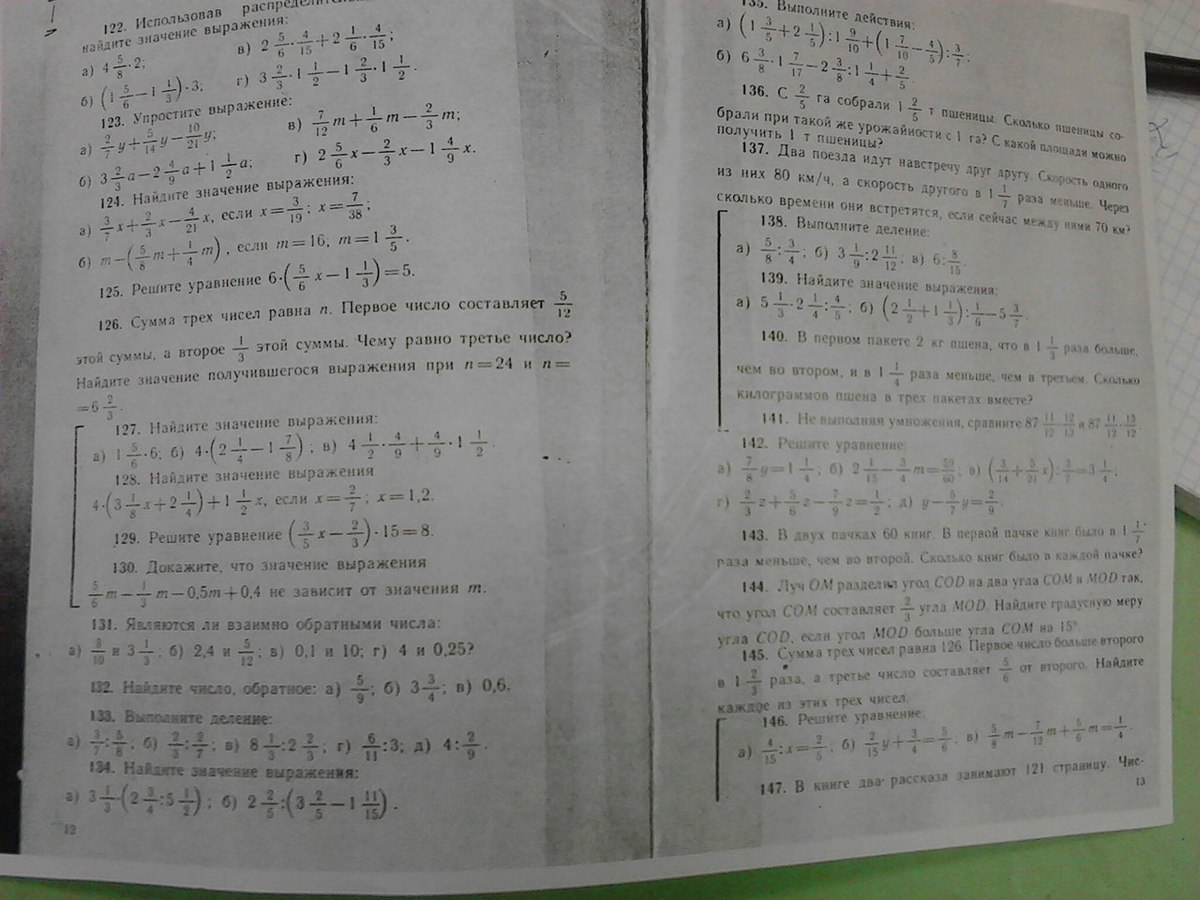 122. Использовав распределительн
найдите значение выражения:
а) 4 5/8 · 2; в) 2 5/6 · 4/15 + 2 1/6 · 4/15;
б) (1 5/6 − 1 1/3) · 3; г) 3 2/3 · 1 1/2 − 1 2/3 · 1 1/2.
123. Упростите выражение:
а) 2/7 y + 5/14 y − 10/21 y; в) 7/12 m + 1/6 m − 2/3 m;
б) 3 2/3 a − 2 4/9 a + 1 1/2 a; г) 2 5/6 x − 2/3 x − 1 4/9 x.
124. Найдите значение выражения:
а) 3/7 x + 2/3 x − 4/21 x, если x = 3/19; x = 7/38;
б) m − (5/8 m + 1/4 m), если m = 16; m = 1 3/5.
125. Решите уравнение 6 · (5/6 x − 1 1/3) = 5.
126. Сумма трех чисел равна n. Первое число составляет 5/12
этой суммы, а второе 1/3 этой суммы. Чему равно третье число?
Найдите значение получившегося выражения при n = 24 и n =
= 6 2/3.
127. Найдите значение выражения:
а) 1 5/6 · 6; б) 4 · (2 1/4 − 1 7/8); в) 4 1/2 · 4/9 + 4/9 · 1 1/2.
128. Найдите значение выражения
4 · (3 1/8 x + 2 1/4) + 1 1/2 x, если x = 2/7; x = 1,2.
129. Решите уравнение (3/5 x − 2/3) · 15 = 8.
130. Докажите, что значение выражения
5/6 m − 1/3 m − 0,5m + 0,4 не зависит от значения m.
131. Являются ли взаимно обратными числа:
а) 3/10 и 3 1/3; б) 2,4 и 5/12; в) 0,1 и 10; г) 4 и 0,25?
132. Найдите число, обратное: а) 5/9; б) 3 3/4; в) 0,6.
133. Выполните деление:
а) 3/7 : 5/8; б) 2/3 : 2/7; в) 8 1/3 : 2 2/3; г) 6/11 : 3; д) 4 : 2/9.
134. Найдите значение выражения:
а) 3 1/3 · (2 3/4 : 5 1/2); б) 2 2/5 : (3 2/5 − 1 11/15).
12
135. Выполните действия:
а) (1 3/5 + 2 1/5) : 1 9/10 + (1 7/10 − 4/5) : 3/7;
б) 6 3/8 · 1 7/17 − 2 3/8 : 1 1/4 + 2/5.
136. С 2/5 га собрали 1 2/5 т пшеницы. Сколько пшеницы со-
брали при такой же урожайности с 1 га? С какой площади можно
получить 1 т пшеницы?
137. Два поезда идут навстречу друг другу. Скорость одного
из них 80 км/ч, а скорость другого в 1 1/7 раза меньше. Через
сколько времени они встретятся, если сейчас между ними 70 км?
138. Выполните деление:
а) 5/8 : 3/4; б) 3 1/9 : 2 11/12; в) 6 : 8/15.
139. Найдите значение выражения:
а) 5 1/3 · 2 1/4 : 4/5; б) (2 1/2 + 1 1/3) : 1/6 − 5 3/7.
140. В первом пакете 2 кг пшена, что в 1 1/3 раза больше,
чем во втором, и в 1 1/4 раза меньше, чем в третьем. Сколько
килограммов пшена в трех пакетах вместе?
141. Не выполняя умножения, сравните 87 11/12 · 12/13 и 87 11/12 · 13/12.
142. Решите уравнение:
а) 7/8 y = 1 1/4; б) 2 1/15 − 3/4 m = 59/60; в) (3/14 + 5/21 x) : 3/7 = 3 1/4;
г) 2/3 z + 5/6 z − 7/9 z = 1/2; д) y − 5/7 y = 2/9.
143. В двух пачках 60 книг. В первой пачке книг было в 1 1/7
раза меньше, чем во второй. Сколько книг было в каждой пачке?
144. Луч OM разделил угол COD на два угла COM и MOD так,
что угол COM составляет 2/3 угла MOD. Найдите градусную меру
угла COD, если угол MOD больше угла COM на 15°.
145. Сумма трех чисел равна 126. Первое число больше второго
в 1 2/3 раза, а третье число составляет 5/6 от второго. Найдите
каждое из этих трех чисел.
146. Решите уравнение:
а) 4/15 : x = 2/5; б) 2/15 y + 3/4 = 5/6; в) 5/8 m − 7/12 m + 5/6 m = 1/4.
147. В книге два рассказа занимают 121 страницу. Чис-
13